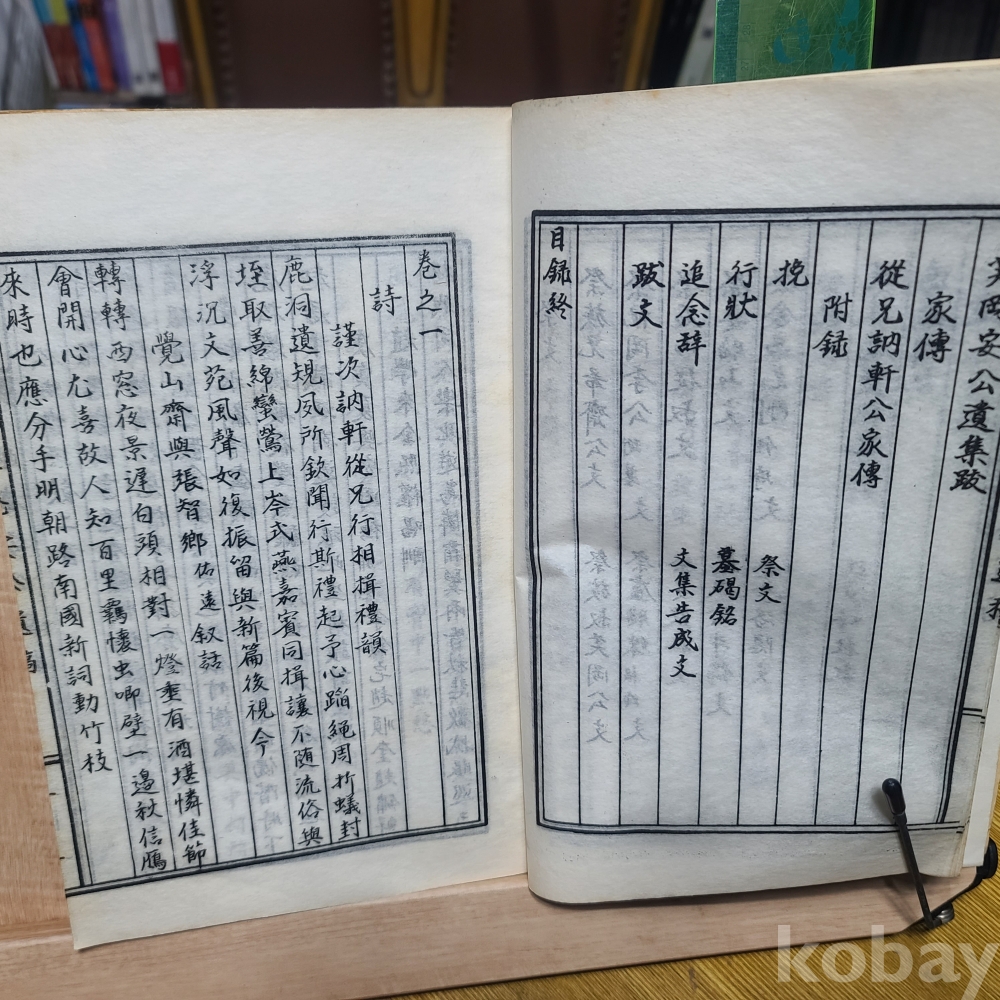 芙岡安公遺集跋
家傳
從兄訥軒公家傳
附録
挽 祭文
行狀 墓碣銘
追念辞 文集告成文
跋文
目録終
卷之一
詩
謹次訥軒從兄行相揖禮韻
鹿洞遺規夙所欽聞行斯禮起予心蹈繩周折蟻封
垤取善綿蠻鶯上岑式燕嘉賓同揖讓不随流俗與
浮沉文苑風聲如復振留與新篇後視今
覺山齋與張智鄉佑遠叙話
轉轉西窓夜景遲白頭相對一燈垂有酒堪憐佳節
會開心尤喜故人知百里羈懷虫唧壁一邊秋信鴈
來時也應分手明朝路南國新詞動竹枝
kobay